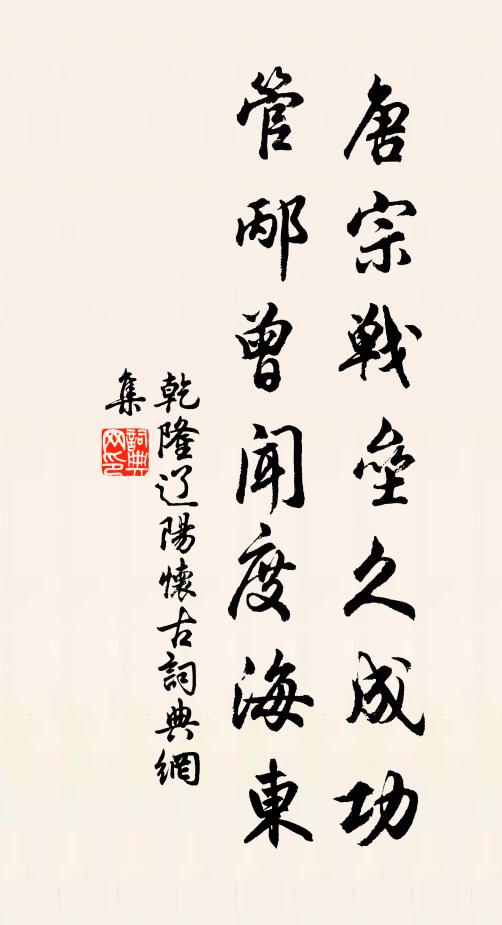 唐宗戰壘久成功
管邴曾聞度海東
乾隆辽陽懷古詞典網
集
詞典
网印